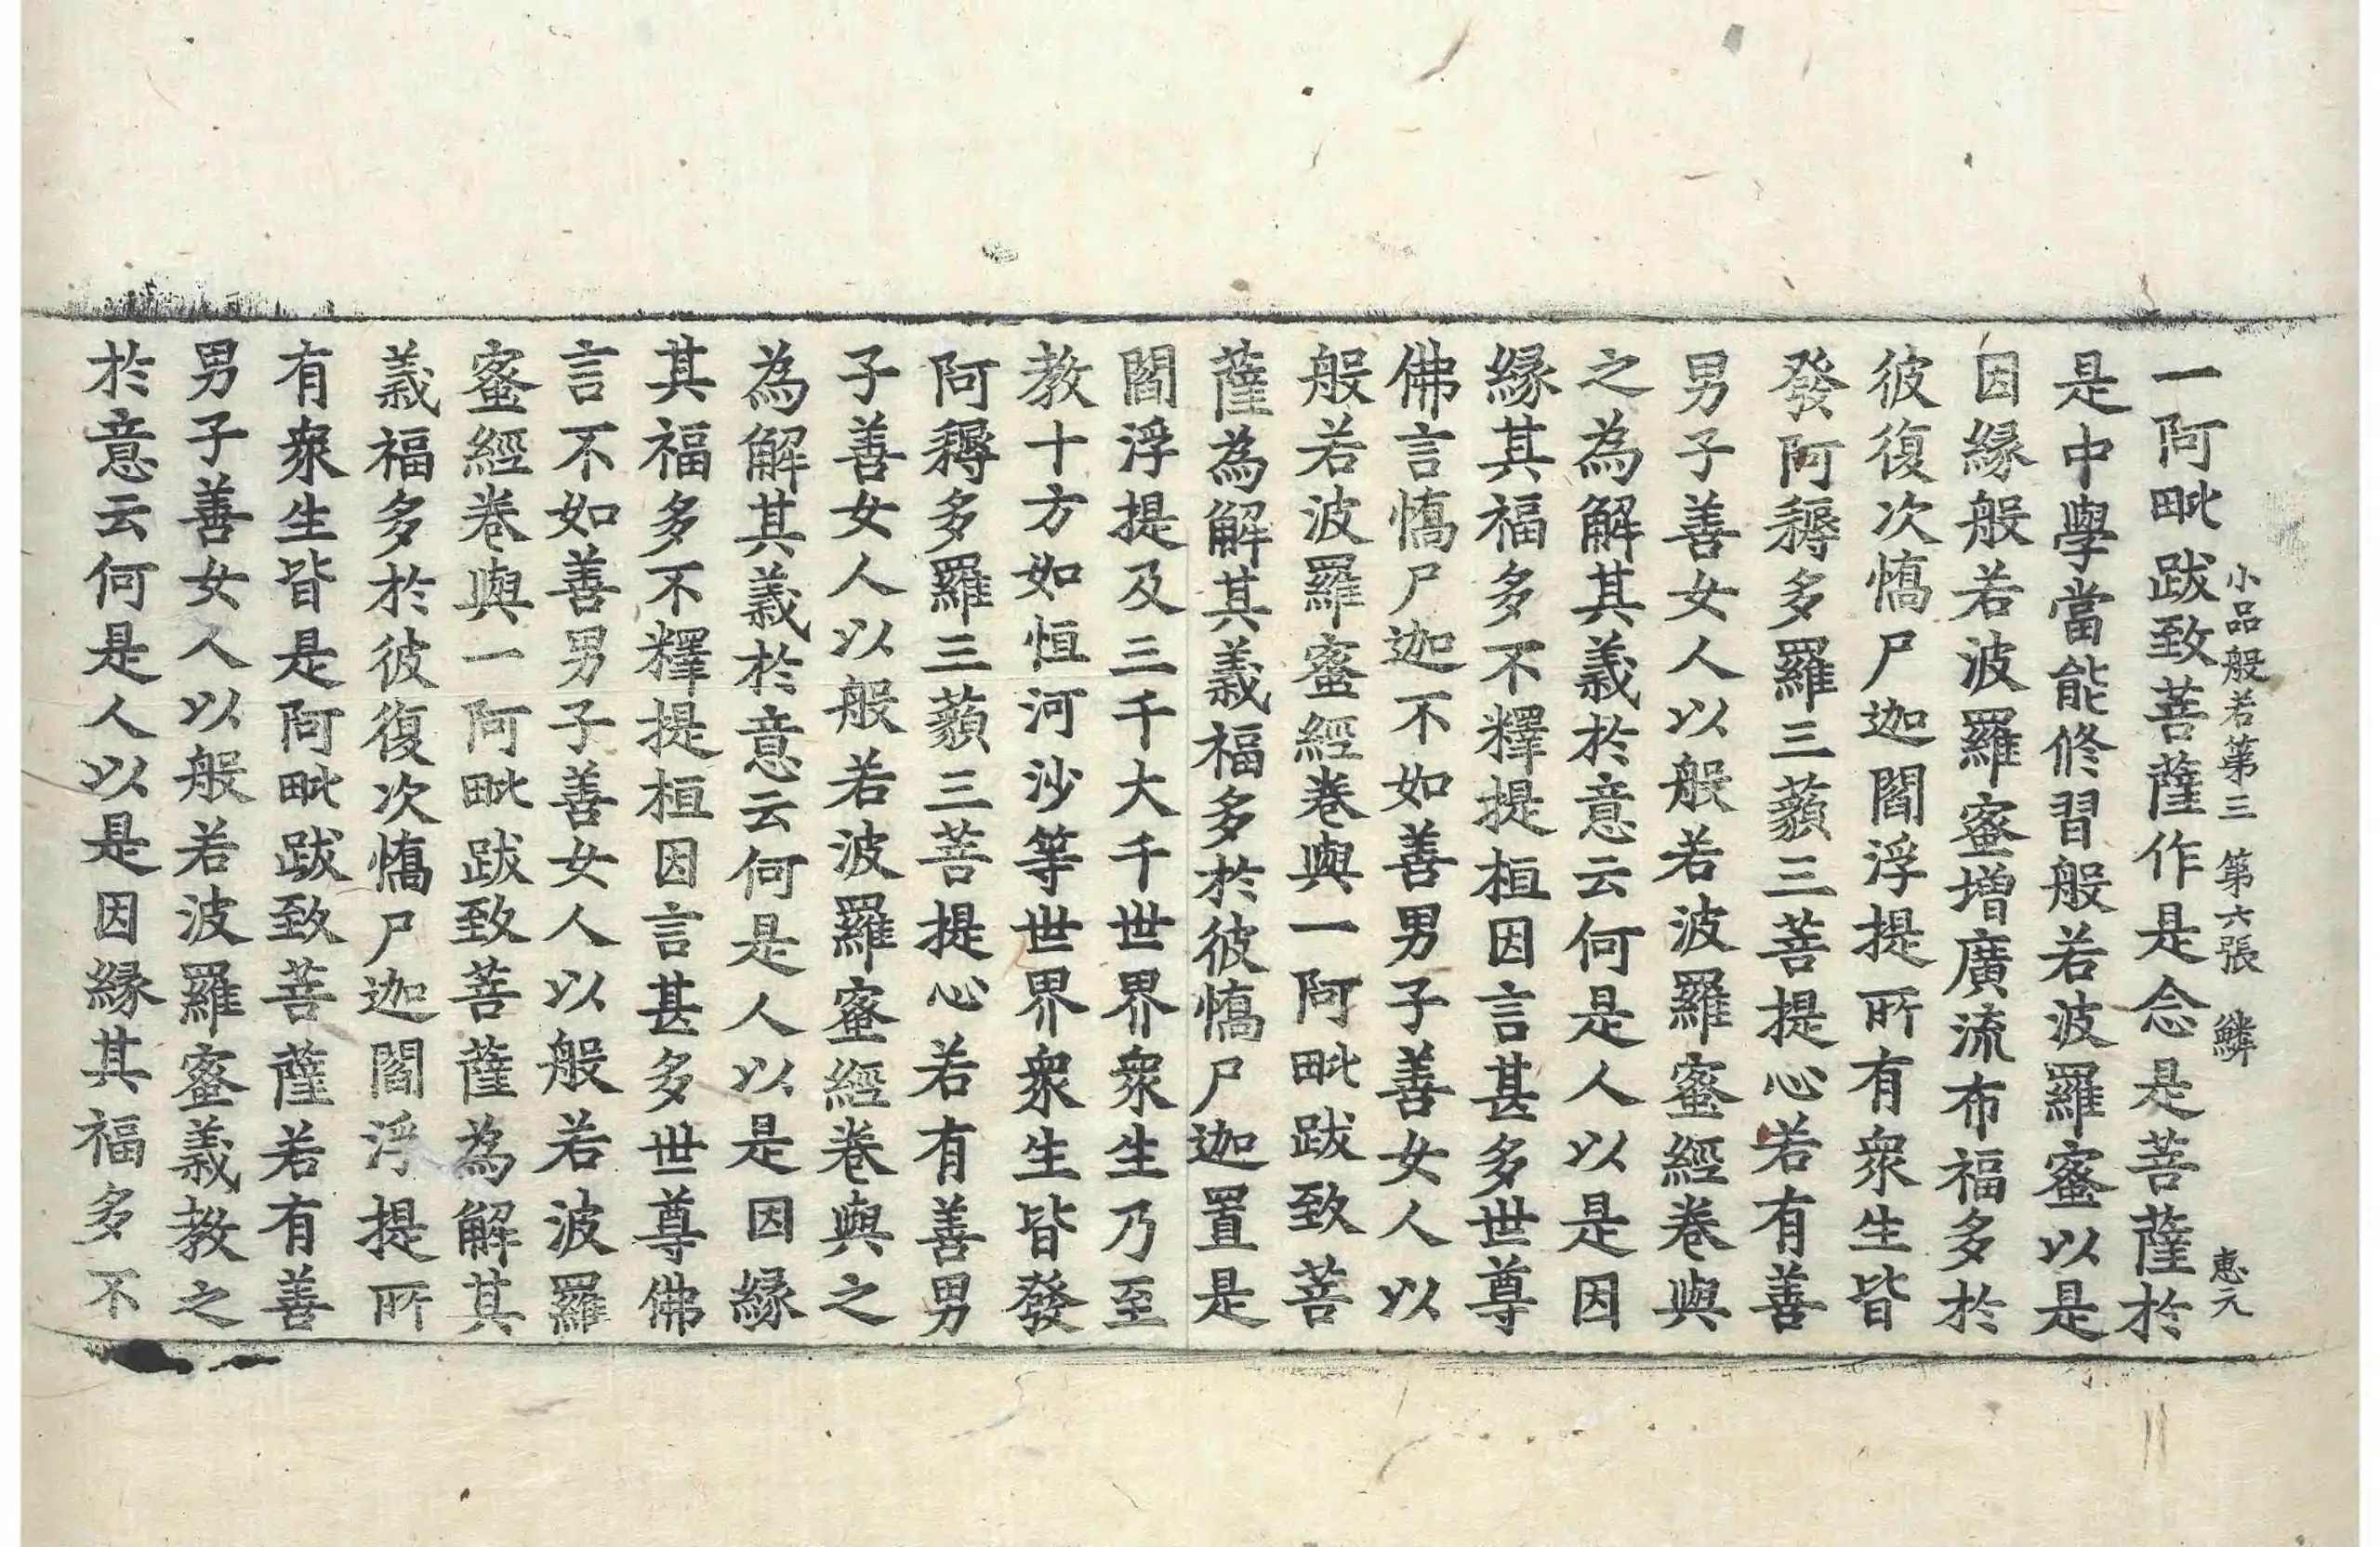 小品般若第三　第六張　鱗　惠元
一阿毗跋致菩薩作是念是菩薩於
是中學當能修習般若波羅蜜以是
因緣般若波羅蜜增廣流布福多於
彼復次憍尸迦閻浮提所有衆生皆
發阿耨多羅三藐三菩提心若有善
男子善女人以般若波羅蜜經卷與
之為解其義於意云何是人以是因
緣其福多不釋提桓因言甚多世尊
佛言憍尸迦不如善男子善女人以
般若波羅蜜經卷與一阿毗跋致菩
薩為解其義福多於彼憍尸迦置是
閻浮提及三千大千世界衆生乃至
教十方如恒河沙等世界衆生皆發
阿耨多羅三藐三菩提心若有善男
子善女人以般若波羅蜜經卷與之
為解其義於意云何是人以是因緣
其福多不釋提桓因言甚多世尊佛
言不如善男子善女人以般若波羅
蜜經卷與一阿毗跋致菩薩為解其
義福多於彼復次憍尸迦閻浮提所
有衆生皆是阿毗跋致菩薩若有善
男子善女人以般若波羅蜜義教之
於意云何是人以是因緣其福多不